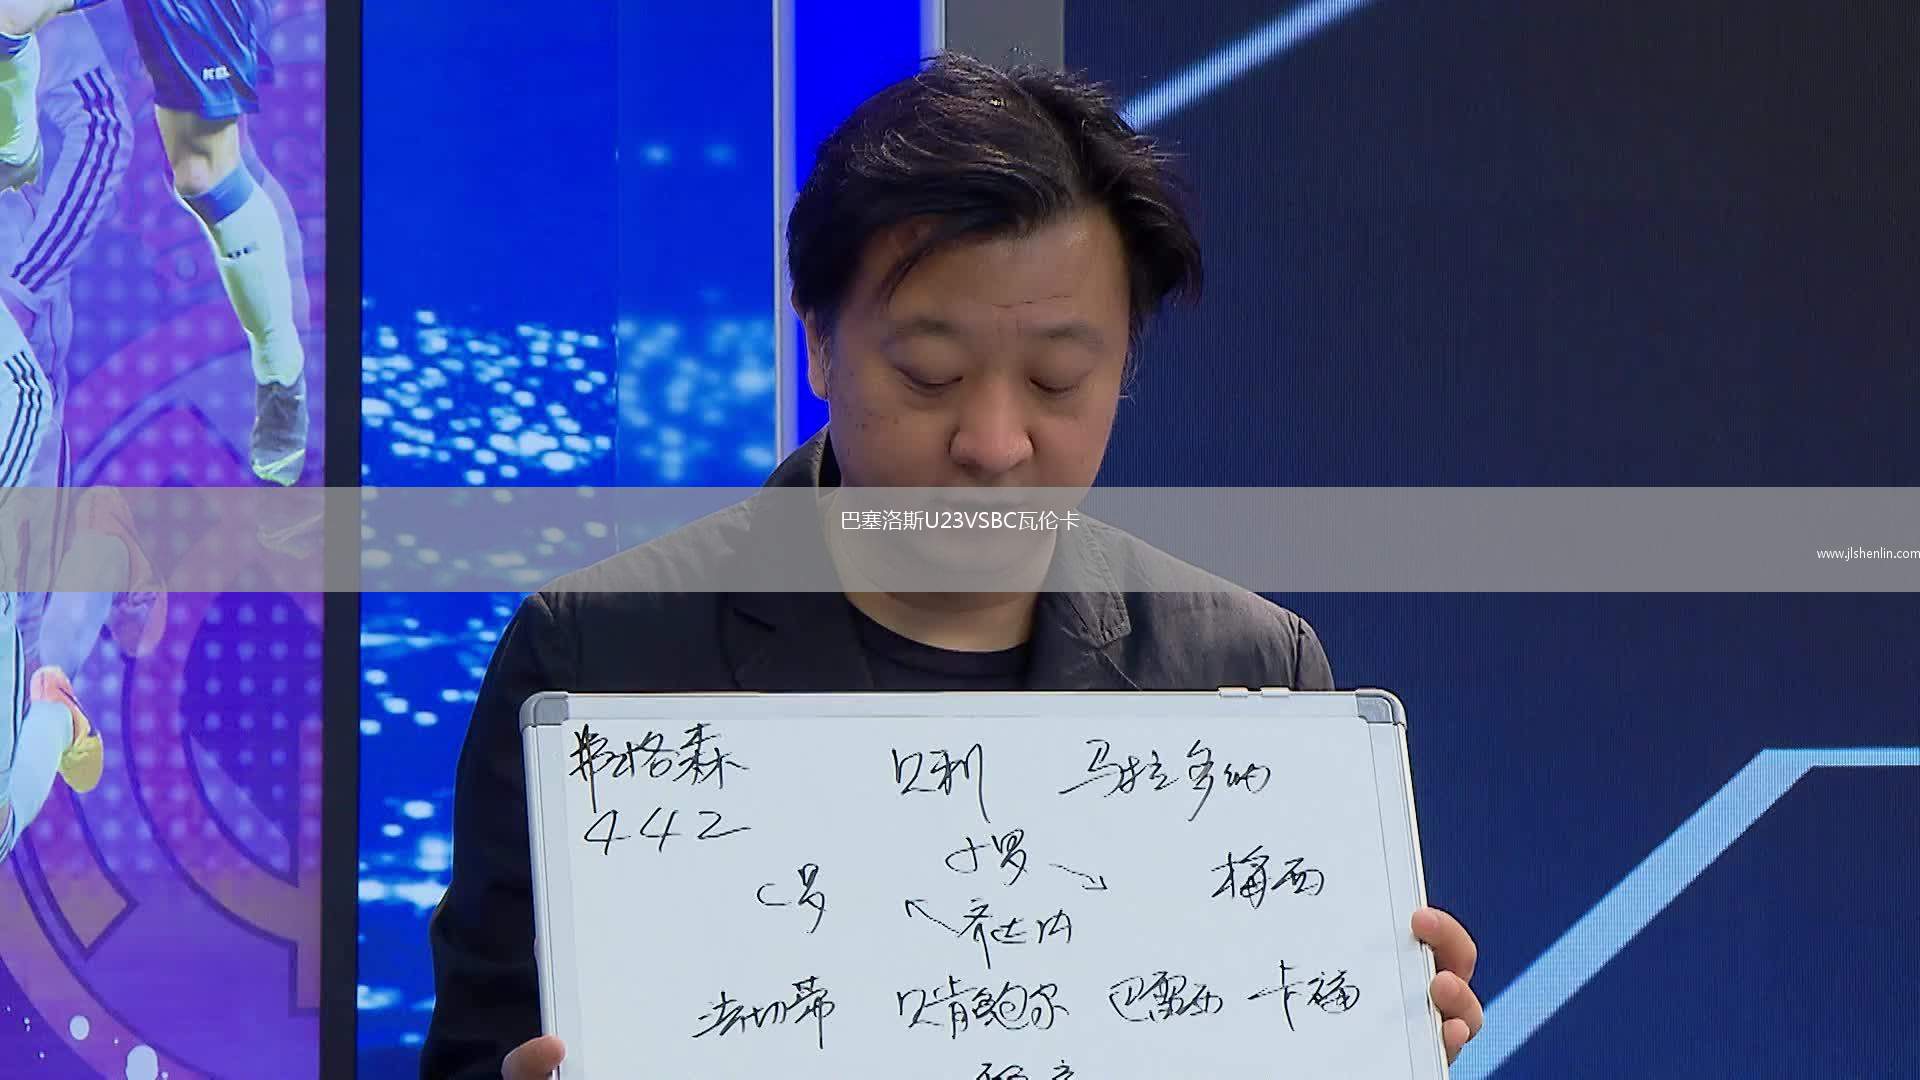 KELME
巴塞洛斯U23VSBC瓦伦卡
www.jlshenlin.com
弗格森 贝利 马拉多纳
442
小罗
C罗 梅西
齐达内
法切蒂 贝肯鲍尔 巴雷西 卡福